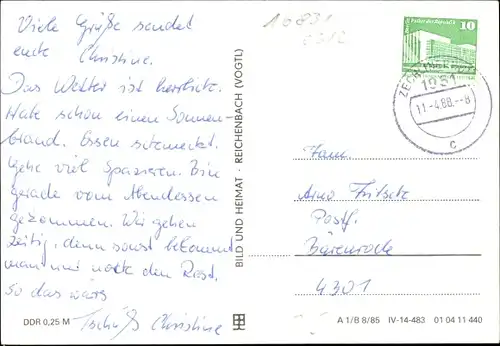 Viele Grüße sendet
eure Christine.
Das Wetter ist herrlich.
Habe schon einen Sonnen-
brand. Essen schmeckt.
Gehe viel Spazieren. Bin
gerade vom Abendessen
gekommen. Wir gehen
zeitig, denn sonst bekommt
man nur noch den Rest.
So das wärs
Tschüß Christine
DDR 0,25 M
BILD UND HEIMAT · REICHENBACH (VOGTL)
A 1/B 8/85 IV-14-483 01 04 11 440
10
1951
11.-4.88.-8
c
Fam.
Arno Fritsche
Postf.
Bärenrode
4301